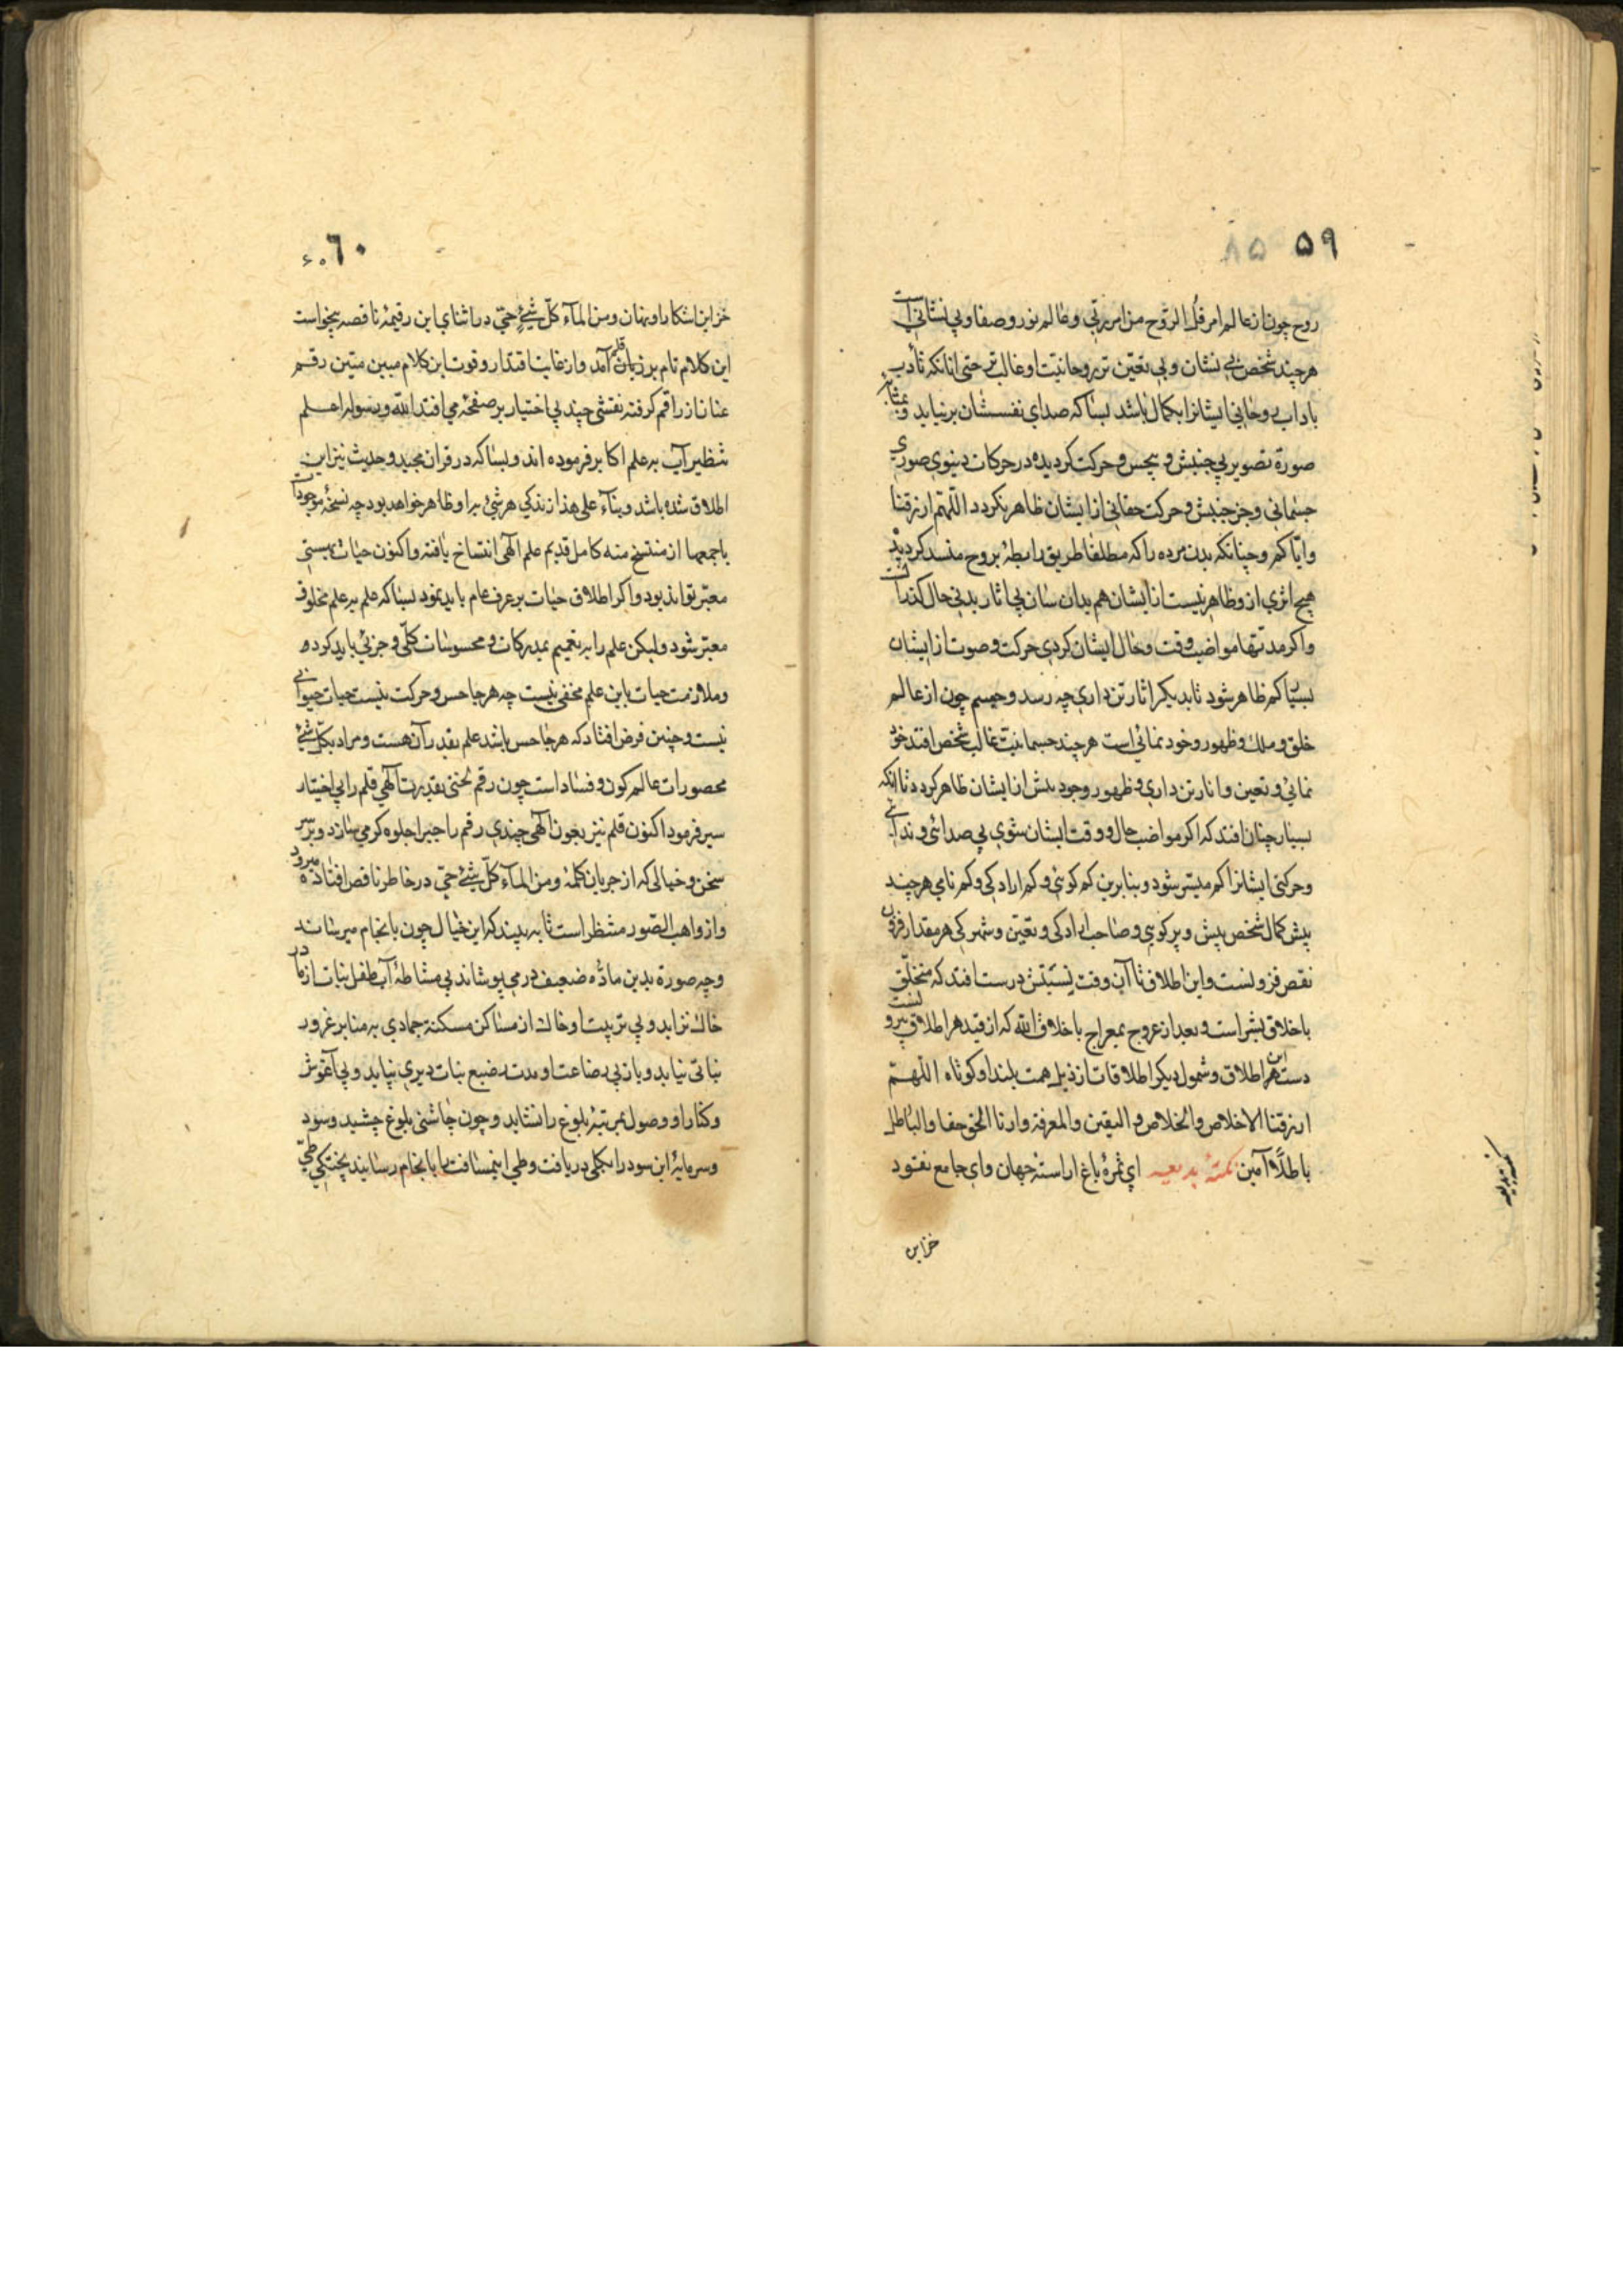 ۵۹
روح چون از عالم امر قل الروح من امر ربّی و عالم نور و صفا و بی نشانی است
هرچند شخص بی نشان و بی تعیّن تر روحانیّت او غالب تر حتی انانکه تأدّب
باداب روحانی ایشانرا بکمال باشد بسا که صدای نفسشان برنیاید و بمثابۀ
صورة تصویر بی جنبش و بیحس و حرکت کردیده در حرکات دنیوی صوری
جسمانی و جز جنبش و حرکت حقانی از ایشان ظاهر نکردد اللّهمّ ارزقنا
و ایّاکم و چنانکه بدن مرده را که مطلقا طریق رابطۀ بروح منسد کردیده
هیچ اثری از و ظاهر نیست از ایشان هم بدان سان بی اثار بدنی حال کذرانست
و اکر مدتها مواضب وقت و حال ایشان کردی حرکت و صوت از ایشان
بسیا کم ظاهر شود تا بدیکر اثار تن داری چه رسد و جسم چون از عالم
خلق و ملک و ظهور و خود نمائی است هرچند جسمانیّت غالب شخص افتد خود
نمائی و تعین و اثار تن داری و ظهور وجود بدنش از ایشان ظاهر کردد تا انکه
بسیار چنان افتد که اکر مواضب حال و وقت ایشان شوی بی صدائی و ندائی
و حرکتی ایشانرا کم میسّر شود و بنابرین کم کوئی و کم ارادکی و کم نامی هرچند
بیش کمال شخص بیش و پر کوئی و صاحب ارادکی و تعیّن و شهرکی هر مقدار فزون
نقص فزونست و این اطلاق تا آن وقت نسبتش درست افتد که متخلّق
باخلاق بشر است و بعد از عروج بمعراج باخلاق الله که از قید هر اطلاق بیرونست
دست این هر اطلاق و شمول دیکر اطلاقات از ذیل همت بلند او کوتاه اللّهمّ
ارزقنا الاخلاص و الخلاص و الیقین و المعرفة و ارنا الحق حقا و الباطل
باطلاً آمین نکتۀ بدیعیه ای ثمرۀ باغ اراستۀ جهان و ای جامع نقود
خزاین
نکتۀ بدیعیه
٦۰
خزاین اشکارا و نهان و من المآء کلّ شیءٍ حیّ در اثنای این رقیمۀ ناقصه بیخواست
این کلام تام بر زبان قلم آمد و از غایت اقتدار و قوت این کلام مبین متین رقم
عنان از راقم کرفته نقشی چند بی اختیار بر صفحه می افتد الله و رسوله اعلم
تنظیر آب به علم اکابر فرموده اند و بسا که در قران مجید و حدیث نیز این
اطلاق شده باشد و بنآء علی هذا زندکی هر شئ بر او ظاهر خواهد بود چه نسخۀ موجودات
باجمعها از منتسخ منه کامل قدیم علم الهی انتساخ یافته و اکنون حیات بهستی
معبّر تواند بود و اکر اطلاق حیات بر عرف عام باید نمود بسا که علم به علم مخلوق
معبّر شود و لیکن علم را به تعمیم بمدرکات و محسوسات کلّی و جزئی باید کرده
و ملازمت حیات باین علم مخفی نیست چه هر جا حس و حرکت نیست حیات حیوانی
نیست و چنین فرض افتاد که هر جا حس باشد علم بقدر آن هست و مراد بکلّ شئ
محصورات عالم کون و فساد است چون رقم نخستی بقدرت الهی قلم را بی اختیار
سیر فرمود اکنون قلم نیز بعون الهی چندی رقم را جبرا جلوه کر می سازد و بر سر
سخن و خیالی که از جریان کلمۀ و من المآء کلّ شئ حیّ در خاطر ناقص افتاده میرود
و از واهب الصّور منتظر است تا به بیند که این خیال چون بانجام میرساند
و چه صورة بدین مادّه ضعیف درمی پوشاند بی مشاطۀ آب طفل نبات از مادر
خاک نزاید و بی تربیت او خاک از مساکن مسکنة جمادی به منابر غرور
نباتی نیاید و باز بی رضاعت او مدت رضیع نبات دیری نپاید و بی آغوش
و کنار او وصول بمرتبۀ بلوغ را نشاید و چون چاشنی بلوغ چشید و سود
و سرمایۀ این سود را بکلی دریافت و طی اینمسافت را بانجام رسانید پختکی طیّ